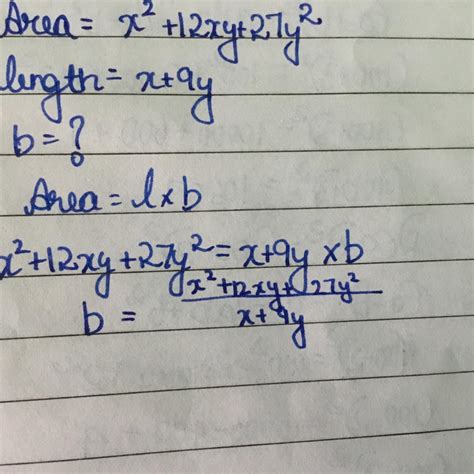 Area = x² + 12xy + 27y²
length = x + 9y
b = ?
Area = l × b
x² + 12xy + 27y² = x + 9y × b
x² + 12xy + 27y²
b =
x + 9y